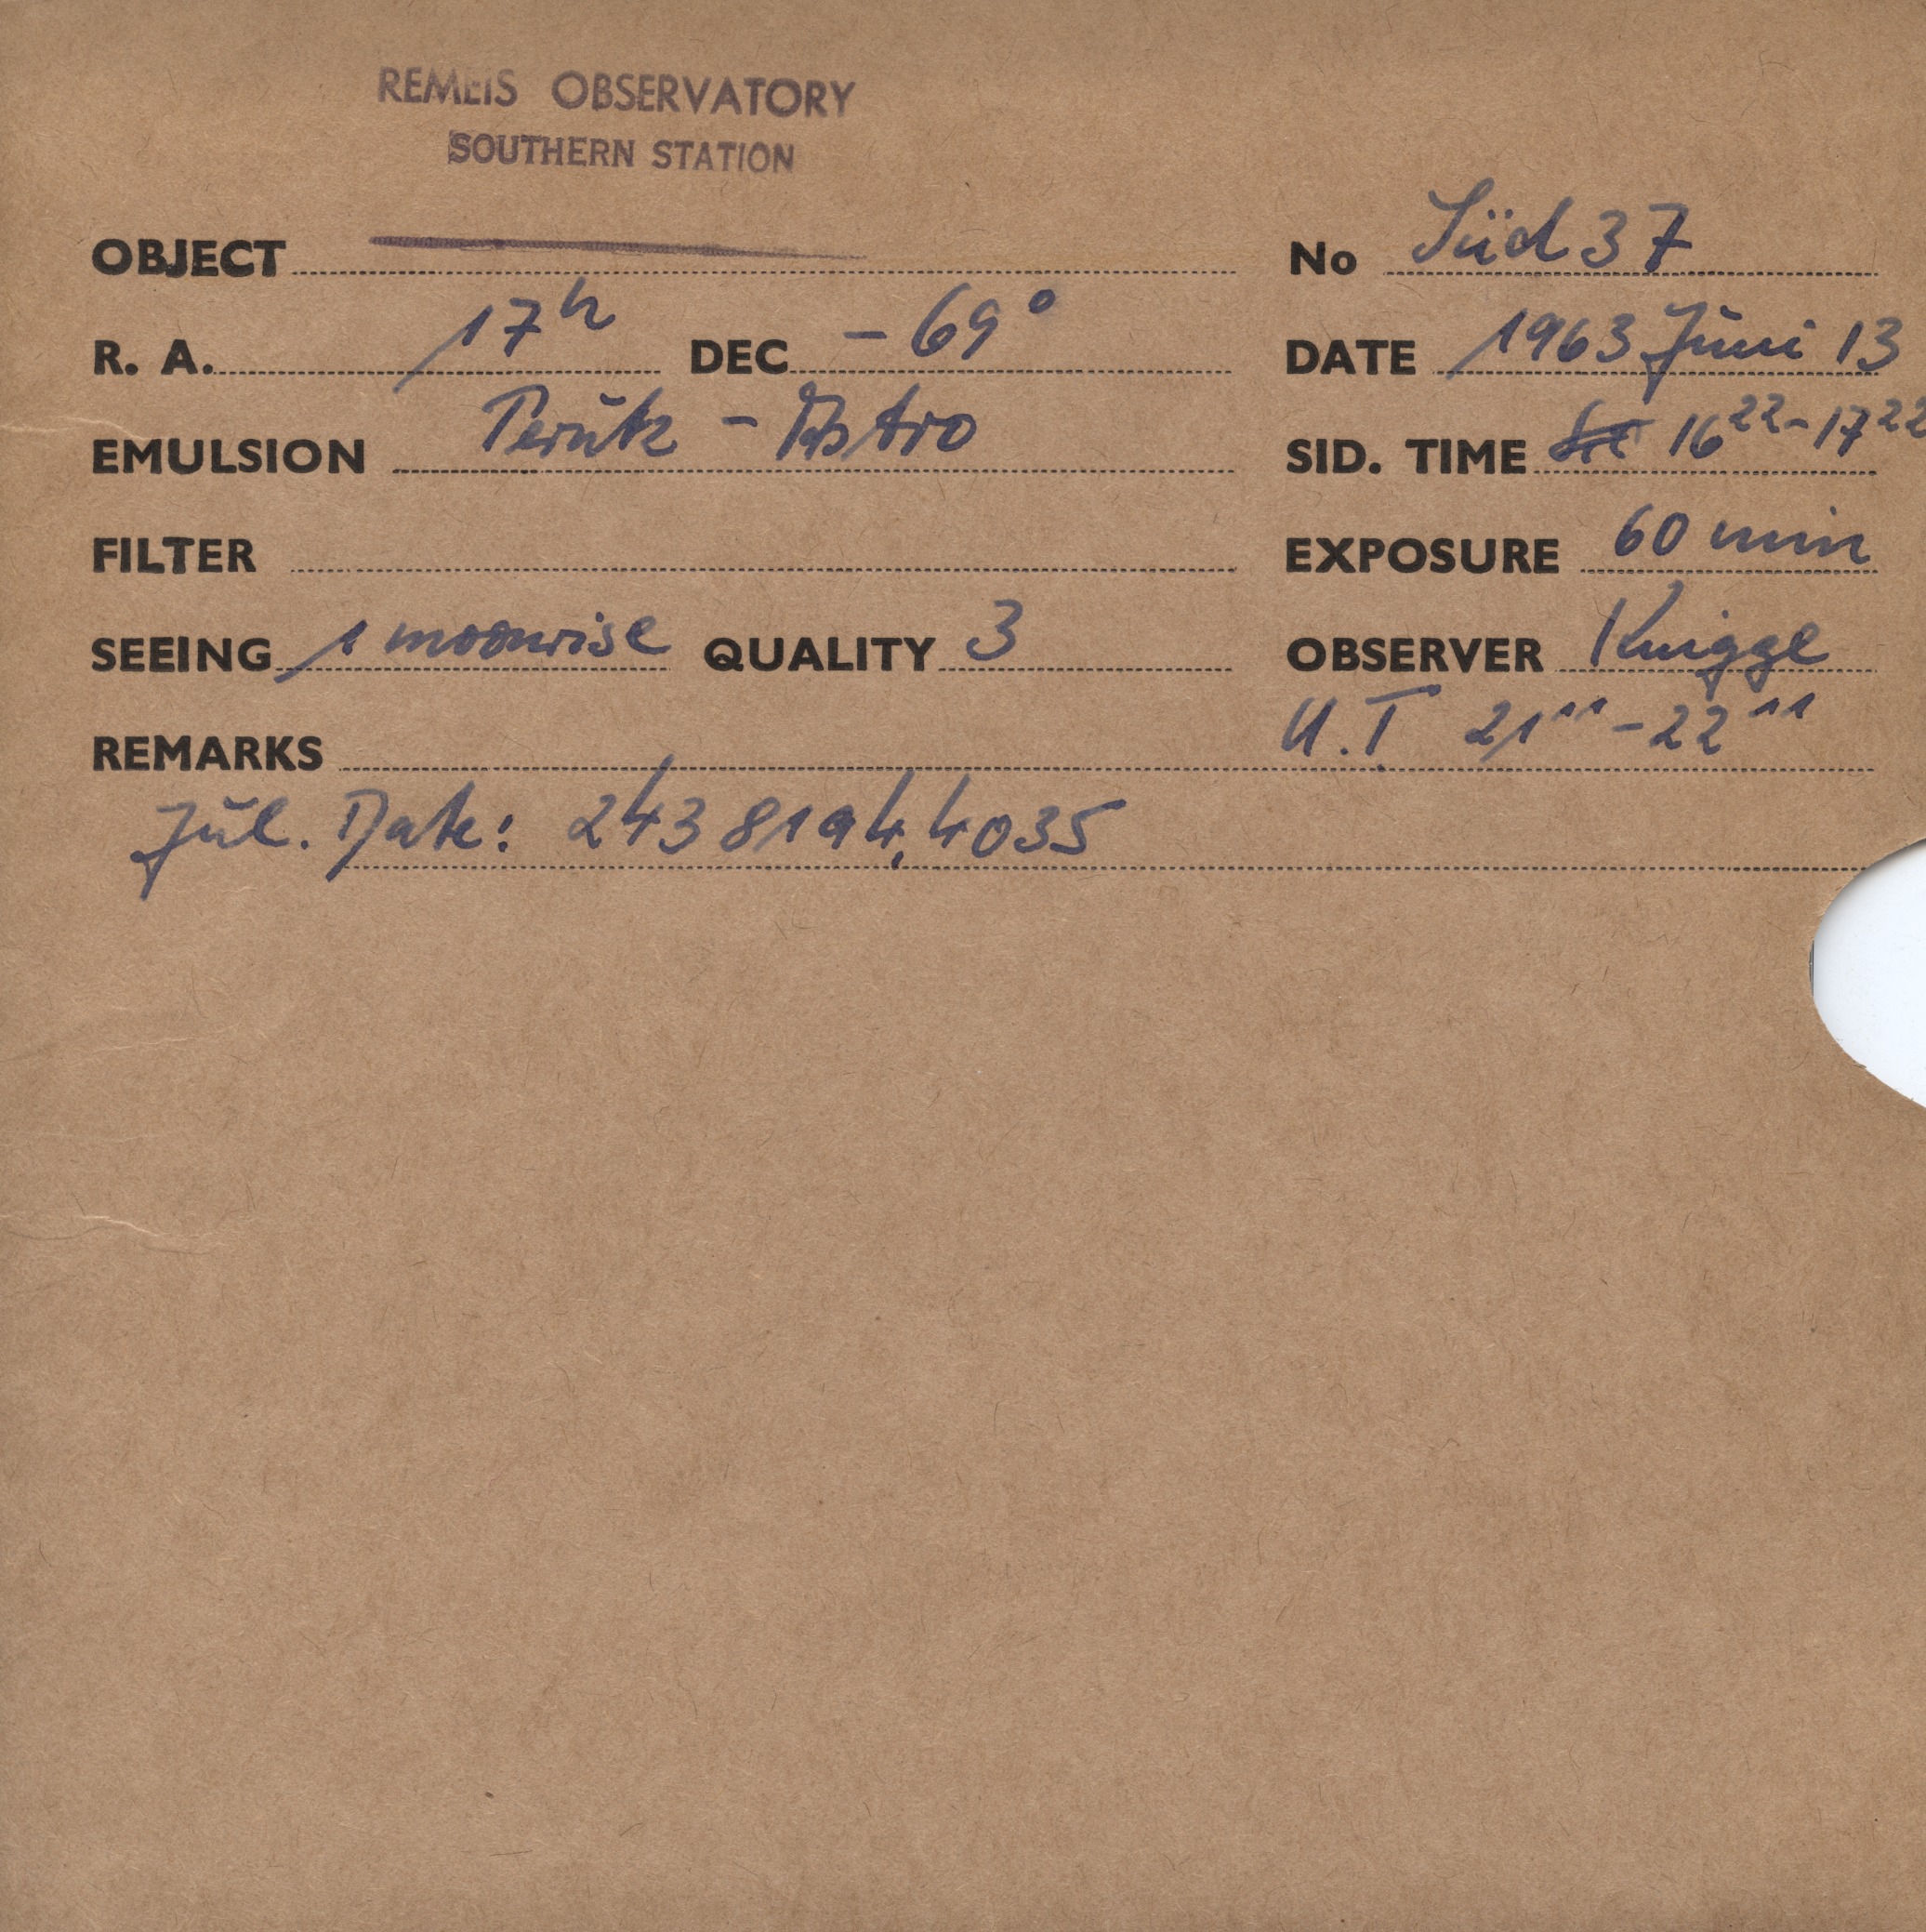 REMEIS OBSERVATORY
SOUTHERN STATION
OBJECT No Süd 37
R. A. 17h DEC -69° DATE 1963 Juni 13
EMULSION Perutz - Astro SID. TIME 16 22 - 17 22
FILTER EXPOSURE 60 min
SEEING 1 moonrise QUALITY 3 OBSERVER Knigge
REMARKS U.T 21 11 - 22 11
Jul. Date: 243 8194,4035